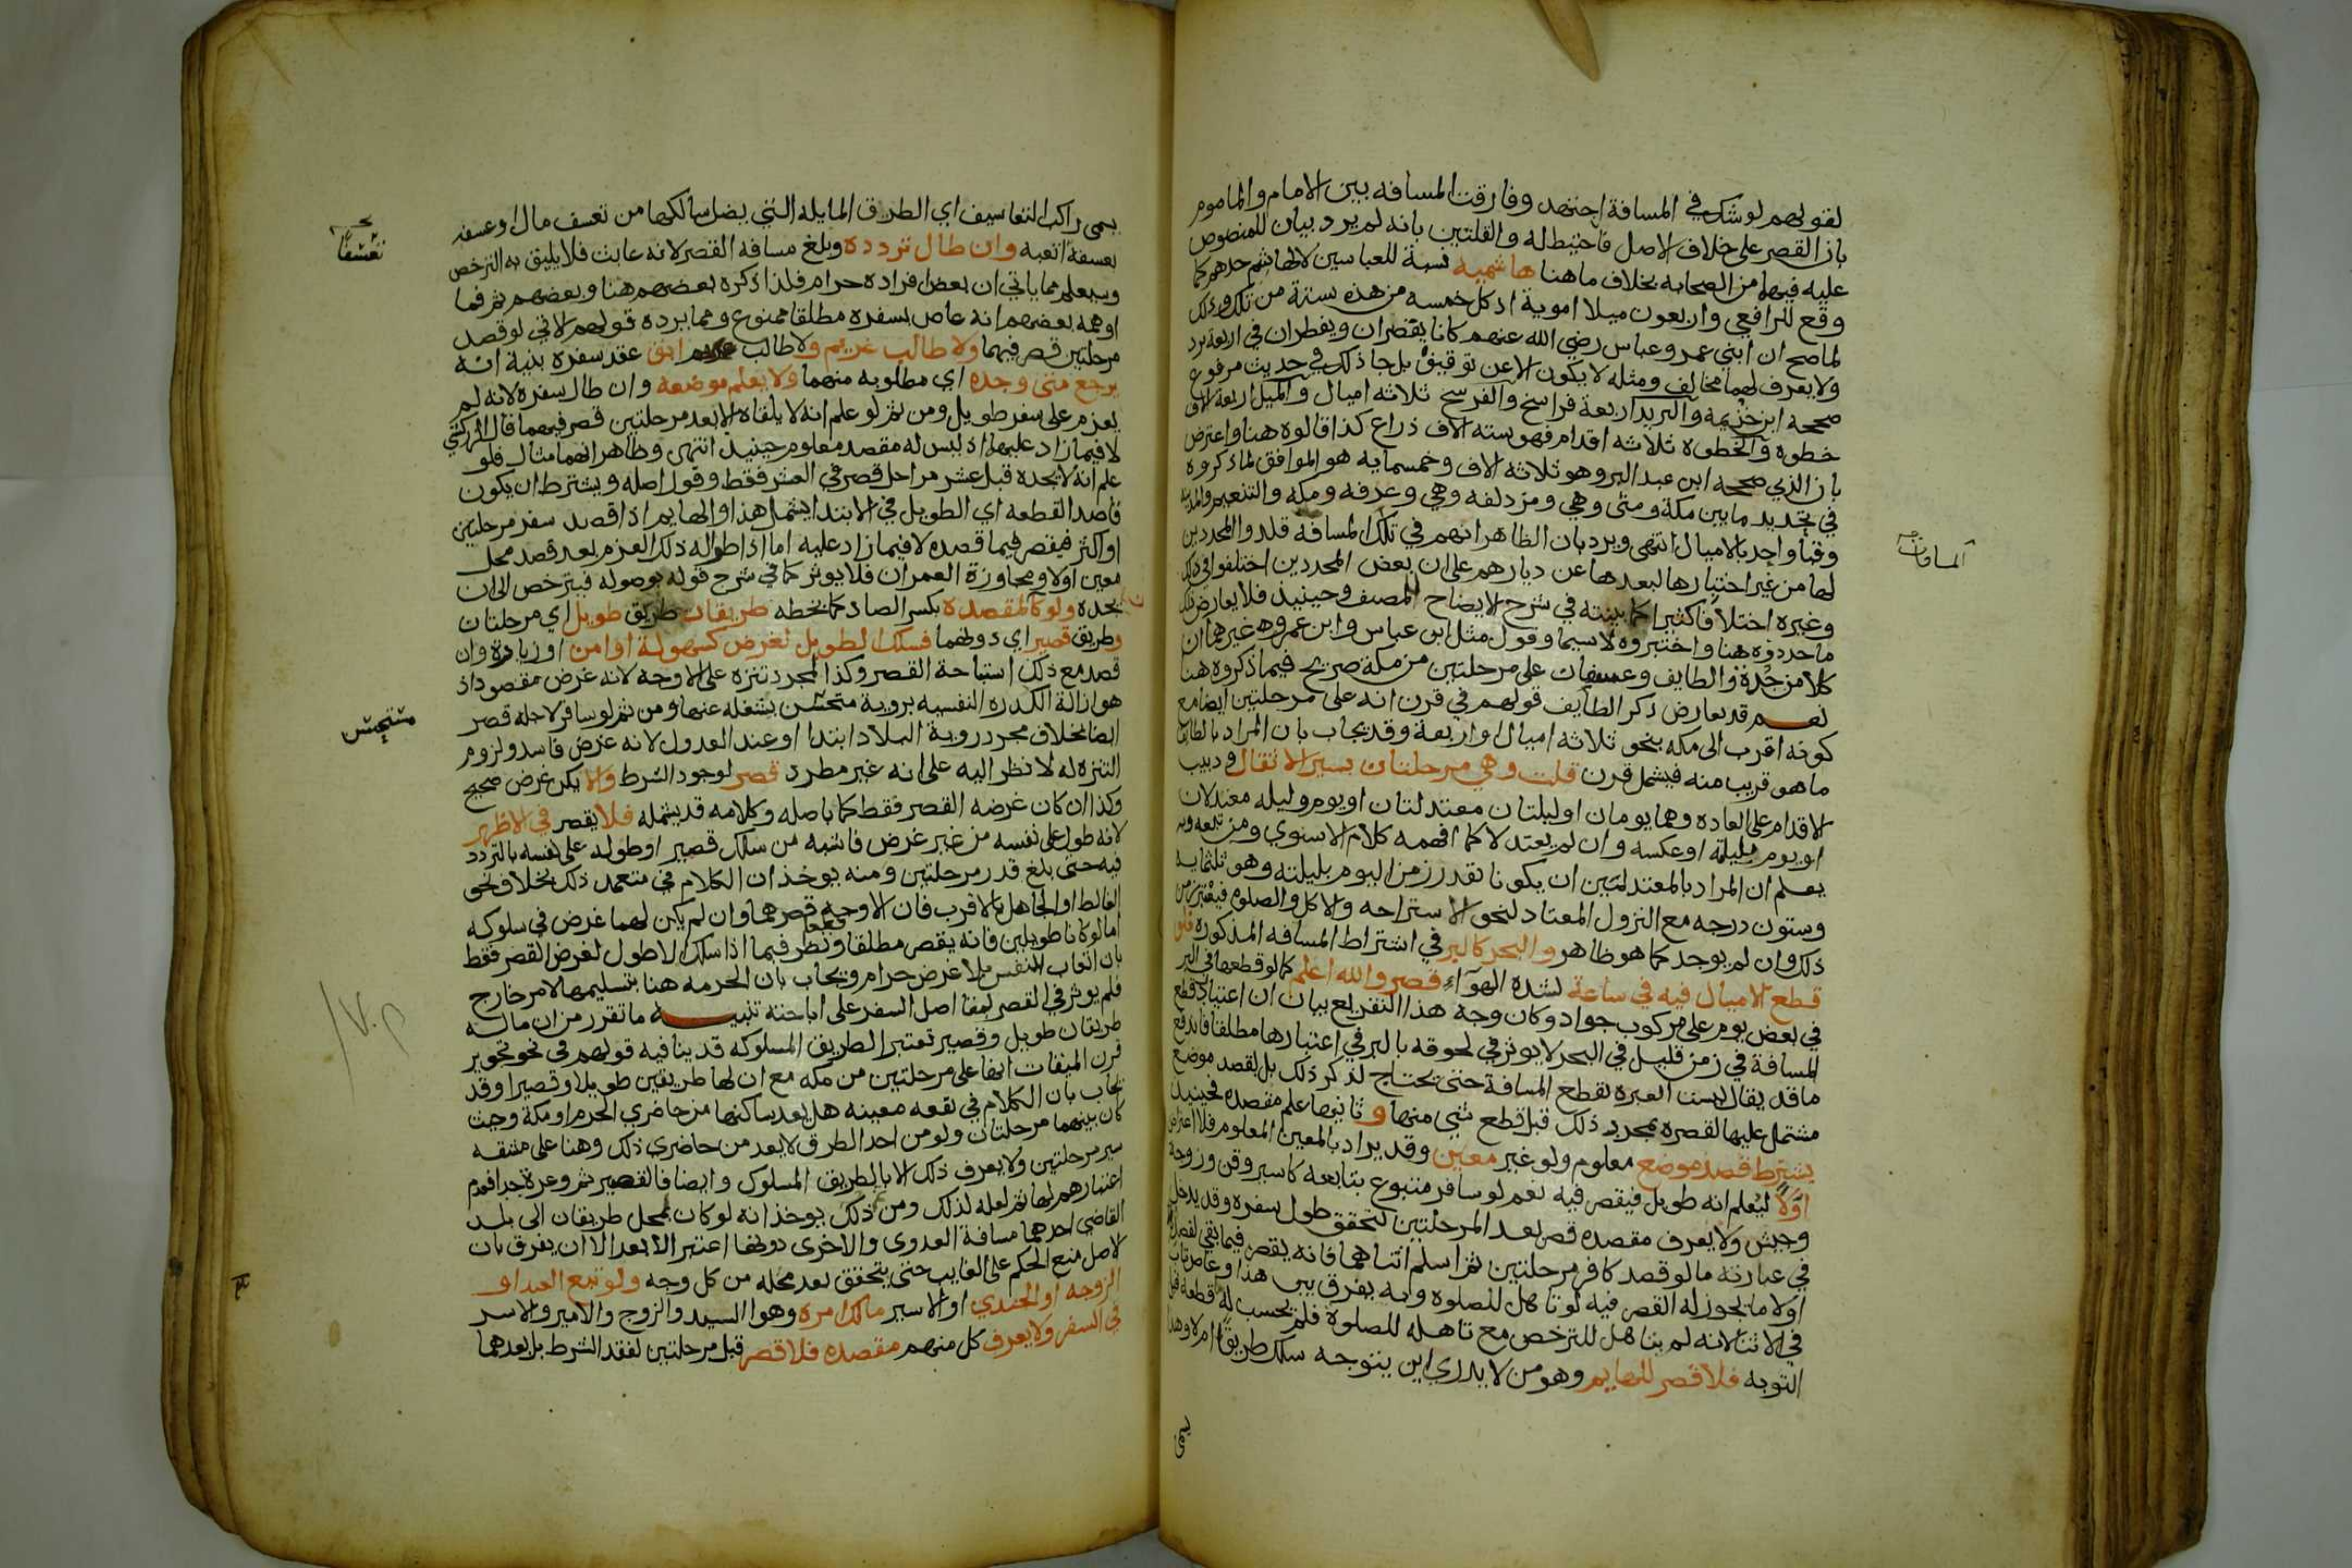 لقولهم لو شك في المسافة اجتهد وفارقت المسافه بين الامام والماموم
بان القصر على خلاف الاصل فاحتيط له والقلتين بانه لم يرد بيان للمنصوص
عليه فيهما من الصحابه بخلاف ما هنا هاشميه نسبة للعباسين لا لهاشم جدهم كما
وقع للرافعي واربعون ميلا اموية اذ كل خمسه من هذه ستة من تلك وذلك
لما صح ان ابني عمر وعباس رضي الله عنهم كانا يقصران ويفطران في اربعة برد
ولا يعرف لهما مخالف ومثله لا يكون الا عن توقيف بل جا ذلك في حديث مرفوع
صححه ابن خزيمه والبريد اربعة فراسخ والفرسخ ثلاثه اميال والميل اربعة الاف
خطوه والخطوه ثلاثه اقدام فهو سته الاف ذراع كذا قالوه هنا واعترض
بان الذي صححه ابن عبد البر وهو ثلاثه الاف وخمسمايه هو الموافق لما ذكروه
في تحديد ما بين مكة ومنى وهي ومزدلفه وهي وعرفه ومكه والتنعيم والمدينه
وقبا واحد بالاميال انتهى ويرد بان الظاهر انهم في تلك المسافه قلدوا المحددين
لها من غير اختبارها لبعدها عن ديارهم على ان بعض المحددين اختلفوا في ذلك
وغيره اختلافا كثيرا كما بينته في شرح الايضاح للمصنف وحينيذ فلا يعارض ذلك
ما حددوه هنا واختبروه لا سيما وقول مثل ابن عباس وابن عمر وغيرهما ان
كلا من جدة والطايف وعسفان على مرحلتين من مكة صريح فيما ذكروه هنا
نعم قد يعارض ذكر الطايف قولهم في قرن انه على مرحلتين ايضا مع
كونه اقرب الى مكه بنحو ثلاثه اميال او اربعة وقد يجاب بان المراد بالطايف
ما هو قريب منه فيشمل قرن قلت وهي مرحلتان بسير الاثقال ودبيب
الاقدام على العاده وهما يومان او ليلتان معتدلتان او يوم وليله معتدلان
او يوم بليلته او عكسه وان لم يعتدلا كما افهمه كلام الاسنوي ومن تبعه وبه
يعلم ان المراد بالمعتدلتين ان يكونا بقدر زمن اليوم بليلته وهو ثلثمايه
وستون درجه مع النزول المعتاد لنحو الاستراحه والاكل والصلوه فيعتبر زمن
ذلك وان لم يوجد كما هو ظاهر والبحر كالبر في اشتراط المسافه المذكوره فلو
قطع الاميال فيه في ساعة لشده الهوآء قصر والله اعلم كما لو قطعها في البر
في بعض يوم على مركوب جواد وكان وجه هذا التفريع بيان ان اعتبار قطع
المسافة في زمن قليل في البحر لا يوثر في لحوقه بالبر في اعتبارها مطلقا فاندفع
ما قد يقال ليست العبره بقطع المسافة حتى تحتاج لذكر ذلك بل بقصد موضع
مشتمل عليها لقصره بمجرد ذلك قبل قطع شي منها و ثانيها علم مقصده فحينيذ
يشترط قصد موضع معلوم ولو غير معين وقد يراد بالمعين المعلوم فلا اعتراض
اوّلاً ليعلم انه طويل فيقصر فيه نعم لو سافر متبوع بتابعه كاسير وقن وزوجة
وجيش ولا يعرف مقصده قصر بعد المرحلتين لتحقق طول سفره وقد يدخل
في عبارته ما لو قصد كافر مرحلتين ثم اسلم اثناهما فانه يقصر فيما بقي لقصده
اولا ما تجوز له القصر فيه لو تاهل للصلوه وبه يفرق بين هذا وعاص تاب
في الاثنا لانه لم يتاهل للترخص مع تاهله للصلوة فلم يحسب له ما قطعه قبل
التوبه فلا قصر للهايم وهو من لا يدري اين يتوجه سلك طريقا ام لا وهذا
يسمى
المسافات
يسمى راكب التعاسيف اي الطرق المايله التي يضل سالكها من تعسف مال او عسفه
تعسفا اتعبه وان طال تردده وبلغ مسافه القصر لانه عابث فلا يليق به الترخص
وسيعلم مما ياتي ان بعض افراده حرام فلذا ذكره بعضهم هنا وبعضهم ثم فما
اوهمه بعضهم انه عاص بسفره مطلقا ممنوع ومما يرده قولهم الاتي لو قصد
مرحلتين قصر فيهما ولا طالب غريم ولا طالب ابق عقد سفره بنية انه
يرجع متى وجده اي مطلوبه منهما ولا يعلم موضعه وان طال سفره لانه لم
يعزم على سفر طويل ومن ثم لو علم انه لا يلقاه الا بعد مرحلتين قصر فيهما قال الزركشي
لا فيما زاد عليهما اذ ليس له مقصد معلوم حينيذ انتهى وظاهر انهما مثال فلو
علم انه لا يجده قبل عشر مراحل قصر في العشر فقط وقول اصله ويشترط ان يكون
قاصدا لقطعه اي الطويل في الابتدا يشمل هذا والهايم اذا قصد سفر مرحلتين
او اكثر فيقصر فيما قصده لا فيما زاد عليه اما اذا طراله ذلك العزم بعد قصد محل
معين اولا ومجاوزة العمران فلا يوثر كما في شرح قوله بوصوله فيترخص الى ان
يجده ولو كان لمقصده بكسر الصاد كما بخطه طريقان طريق طويل اي مرحلتان
وطريق قصير اي دونهما فسلك الطويل لغرض كسهولة او امن او زيارة وان
قصد مع ذلك استباحة القصر وكذا لمجرد تنزه على الاوجه لانه غرض مقصود اذ
هو ازالة الكدره النفسيه بروية مستحسن يشغله عنها ومن ثم لو سافر لاجله قصر
ايضا بخلاف مجرد روية البلاد ابتدا او عند العدول لانه غرض فاسد ولزوم
التنزه له لا نظر اليه على انه غير مطرد قصر لوجود الشرط والا يكن غرض صحيح
وكذا ان كان غرضه القصر فقط كما باصله وكلامه قد يشمله فلا يقصر في الاظهر
لانه طول على نفسه من غير غرض فاشبه من سلك قصير او طوله على نفسه بالتردد
فيه حتى بلغ قدر مرحلتين ومنه يوخذ ان الكلام في متعمد ذلك بخلاف نحو
الغالط او الجاهل بالاقرب فان الاوجه قصرهما وان لم يكن لهما غرض في سلوكه
اما لو كانا طويلين فانه يقصر مطلقا ونظر فيما اذا سلك الاطول لغرض القصر فقط
بان اتعاب النفس بلا غرض حرام ويجاب بان الحرمه هنا بتسليمها لامر خارج
فلم يوثر في القصر لبقا اصل السفر على اباحته تنبيه ما تقرر من ان ماله
طريقان طويل وقصير تعتبر الطريق المسلوكه قد ينافيه قولهم في نحو تحرير
قرن الميقات انها على مرحلتين من مكه مع ان لها طريقين طويلا وقصيرا وقد
يجاب بان الكلام في بقعه معينه هل يعد ساكنها من حاضري الحرم او مكة وحيث
كان بينهما مرحلتان ولو من احد الطرق لا يعد من حاضري ذلك وهنا على مشقه
سير مرحلتين ولا يعرف ذلك الا بالطريق المسلوك وايضا فالقصير ثم وعرة جدا فعدم
اعتبارهم لها ثم لعله لذلك ومن ذلك يوخذ انه لو كان لمحل طريقان الى بلد
القاضي احدهما مسافة العدوى والاخرى دونها اعتبر الابعد الا ان يفرق بان
الاصل منع الحكم على الغايب حتى يتحقق بعد محله من كل وجه ولو تبع العبد او
الزوجه او الجندي او الاسير مالك امره وهو السيد والزوج والامير والاسر
في السفر ولا يعرف كل منهم مقصده فلا قصر قبل مرحلتين لفقد الشرط بل بعدهما
تعسفا
مستحسن
١٧٠